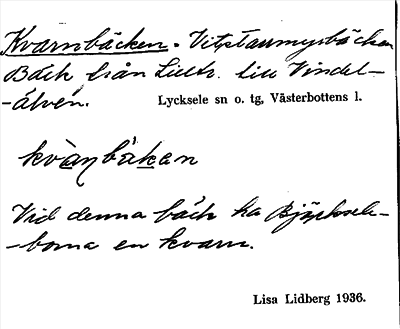 Kvarnbäcken. Vitstarrmyrbäcken
Bäck från Lilltr. till Vindel-
-älven.
Lycksele sn o. tg, Västerbottens l.
kvàṇbäkan
Vid denna bäck ha Björksele-
-borna en kvarn.
Lisa Lidberg 1936.